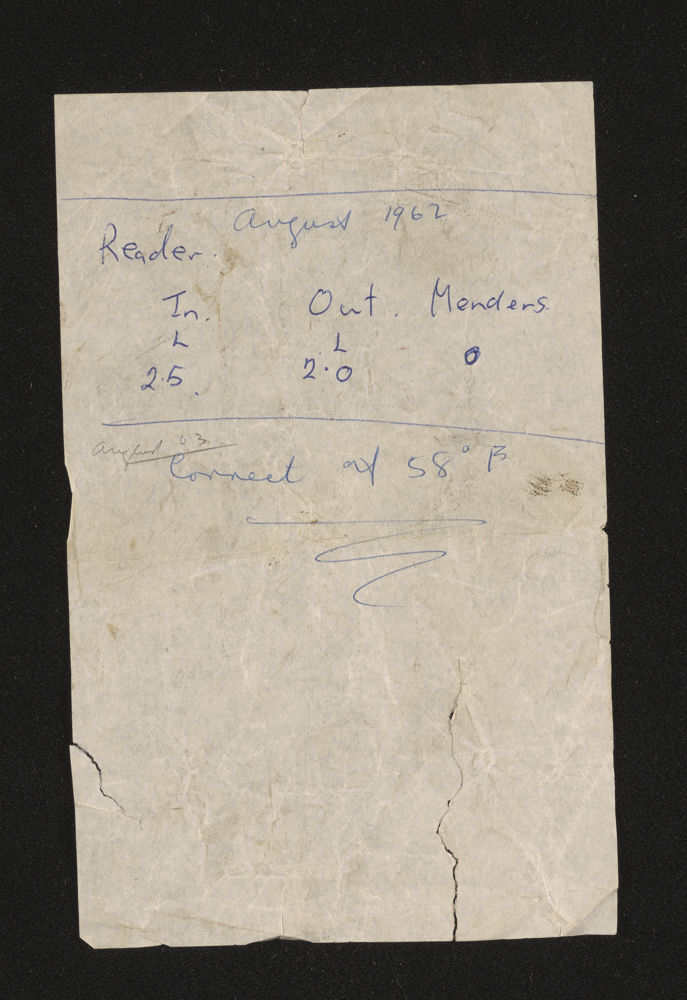 August 1962
Reader.
In. Out. Menders.
L L
2.5. 2.0 0
August 63
Correct at 58° F